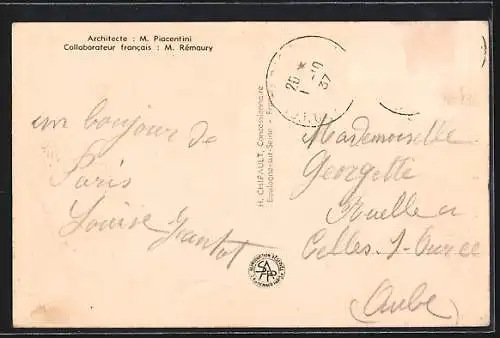 Architecte : M. Piacentini
Collaborateur français : M. Rémaury
un bonjour de
Paris
Louise Grantot
H. CHIPAULT, Concessionnaire
Boulogne-sur-Seine -
20 * 1 -10
37
Mademoiselle
Georgette
Rouelle a
Celles-s-Ource
(Aube)